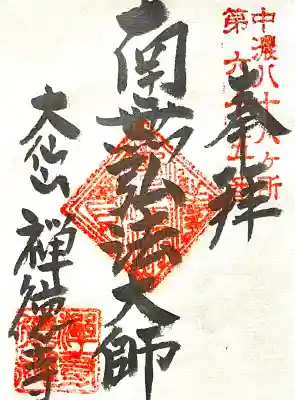 中濃八十八ヶ所
第六十五番
奉拝
南無弘法大師
大仙山
禅徳寺